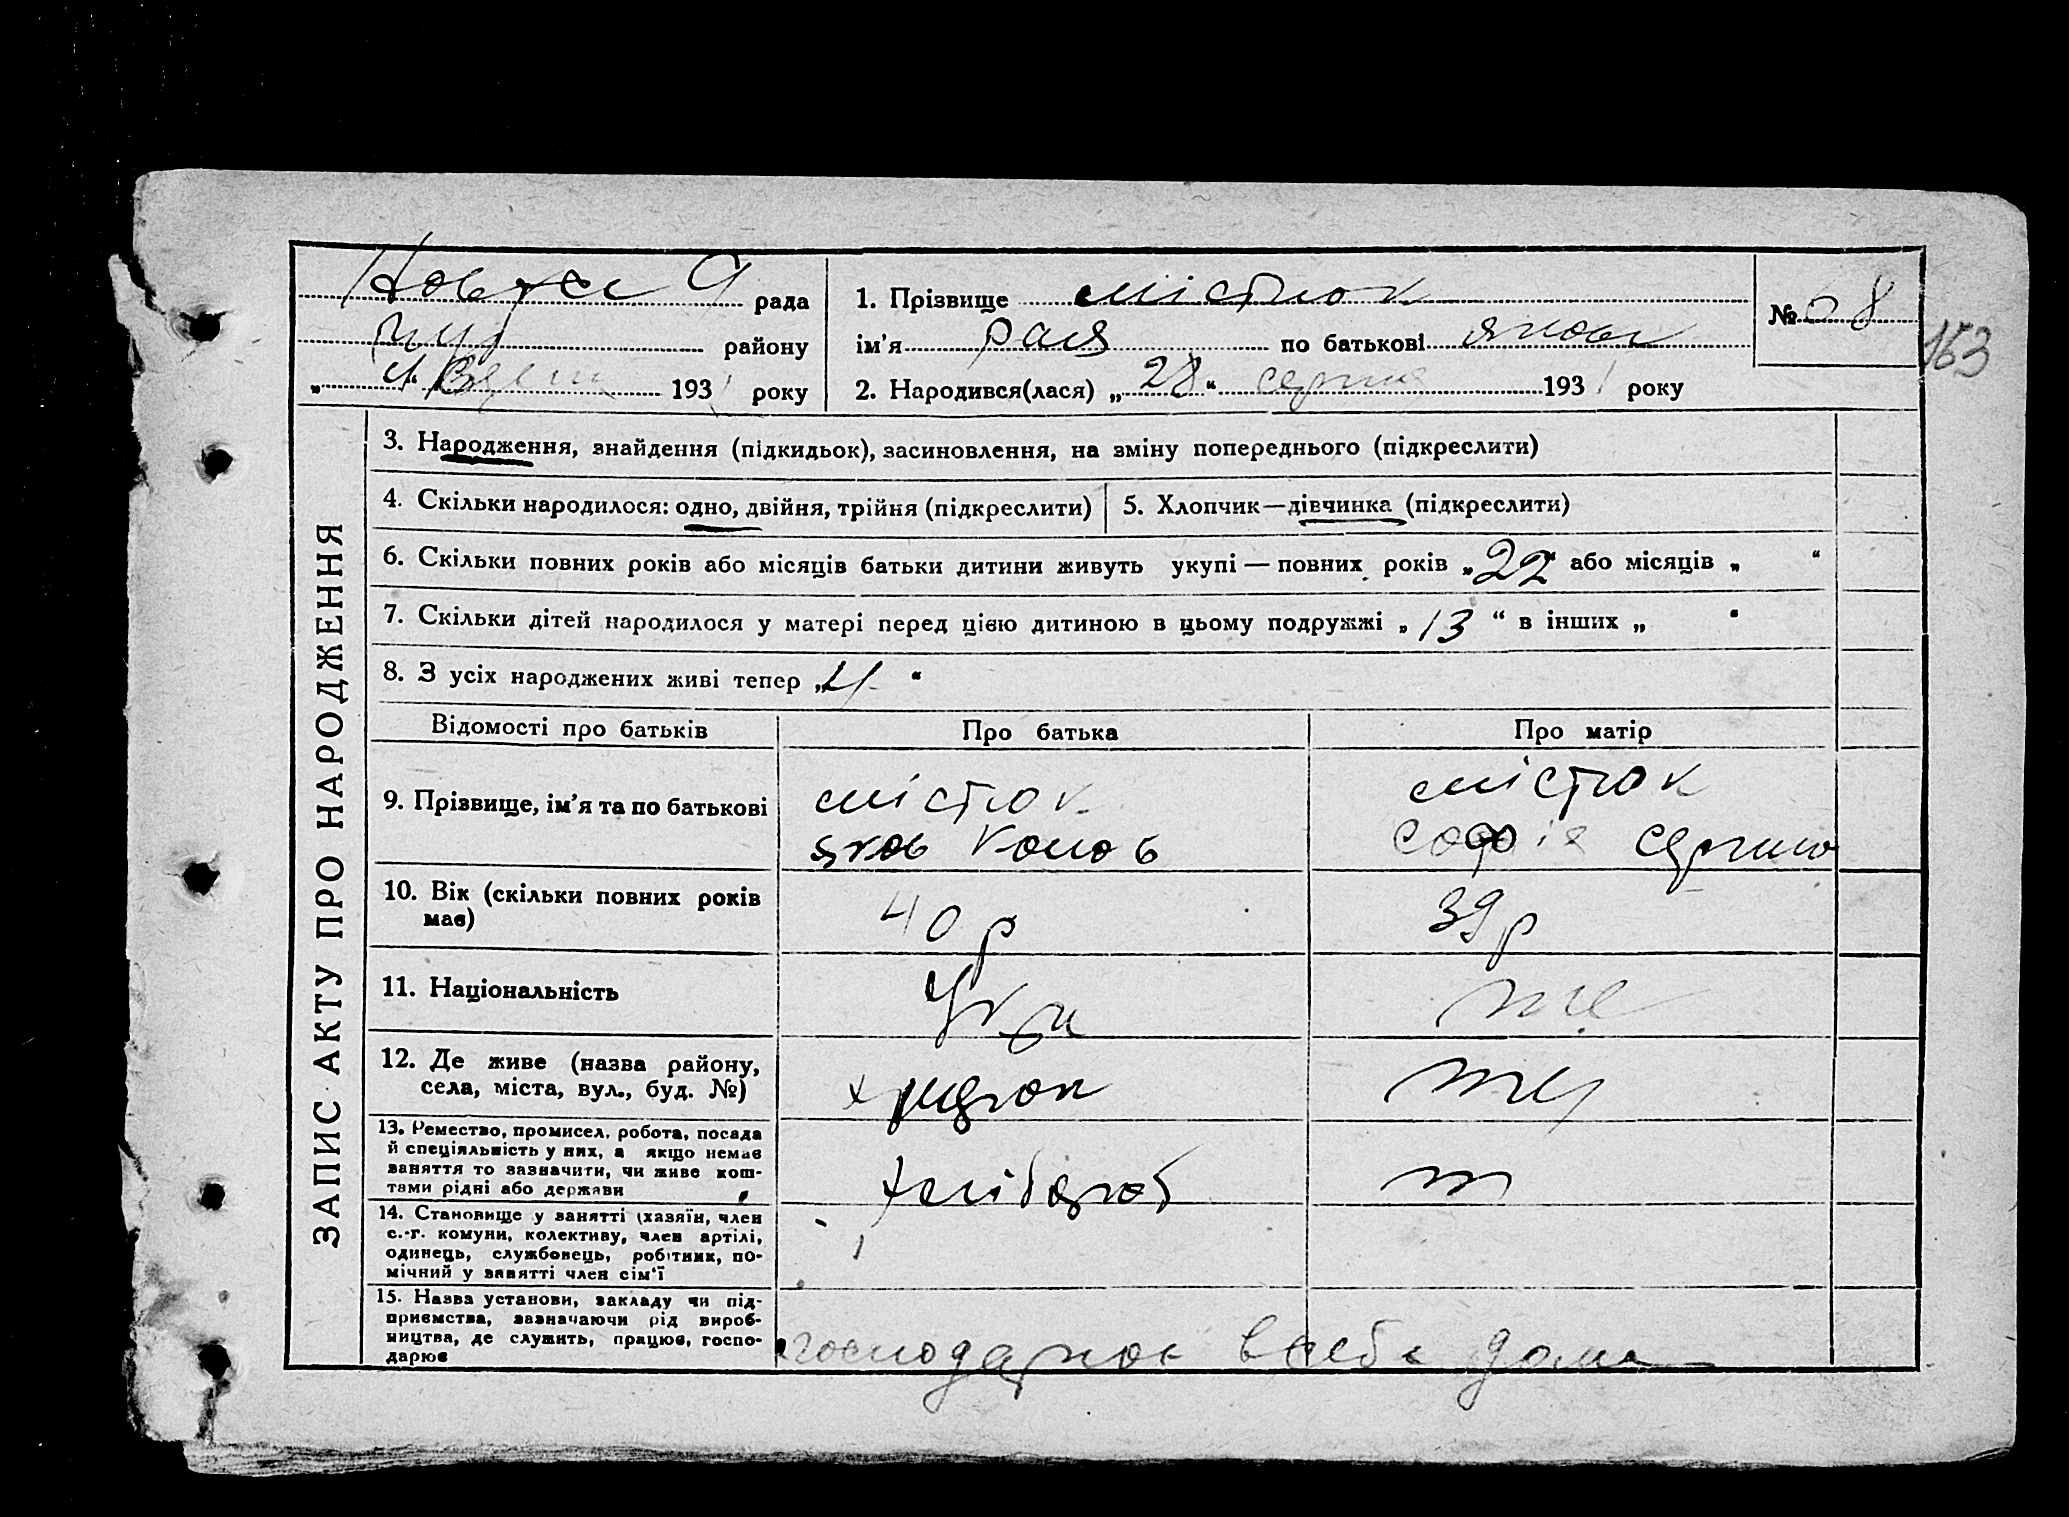 рада
району
193 року
1. Прізвище містюк
ім'я Рая по батькові Яковл
2. Народився(лася) „28“ серпня 1931 року
№ 68
163
ЗАПИС АКТУ ПРО НАРОДЖЕННЯ
3. Народження, знайдення (підкидьок), засиновлення, на зміну попереднього (підкреслити)
4. Скільки народилося: одно, двійня, трійня (підкреслити)
5. Хлопчик—дівчинка (підкреслити)
6. Скільки повних років або місяців батьки дитини живуть укупі — повних років „22“ або місяців „ “
7. Скільки дітей народилося у матері перед цією дитиною в цьому подружжі „13“ в інших „ “
8. З усіх народжених живі тепер „4“
Відомості про батьків
Про батька
Про матір
9. Прізвище, ім'я та по батькові
містюк
яков
містюк
софія
10. Вік (скільки повних років
має)
40 р
39 р
11. Національність
Укр
те
12. Де живе (назва району,
села, міста, вул., буд. №)
13. Ремество, промисел, робота, посада
й спеціяльність у них, а якщо немає
заняття то зазначити, чи живе кош-
тами рідні або держави
хлібороб
14. Становище у занятті (хазяїн, член
с.-г. комуни, колективу, член артілі,
одинець, службовець, робітник, по-
мічний у занятті член сім'ї
15. Назва установи, закладу чи під-
приємства, зазначаючи рід вироб-
ництва, де служить, працює, госпо-
дарює
господарює в себе дома